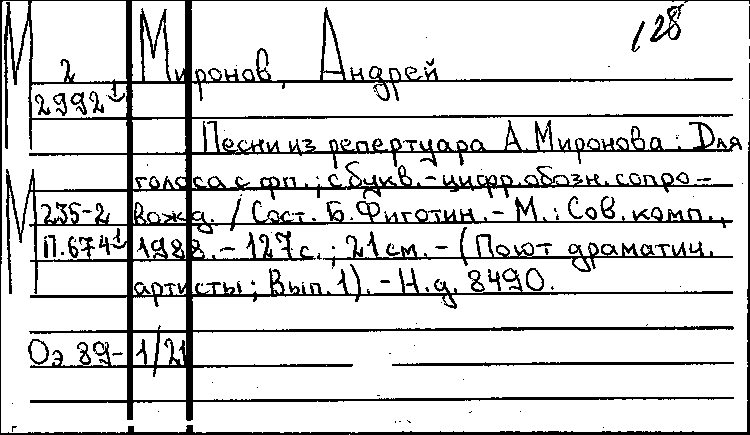 128
М Миронов, Андрей
2
2992
Песни из репертуара А. Миронова: Для
голоса с фп.; с букв.-цифр. обозн. сопро-
М 235-2 вожд. / Сост. Б. Фиготин. - М.: Сов. комп.,
П.674 1988. - 127 с.; 21 см. - (Поют драматич.
артисты; Вып. 1). - Н.д. 8490.
Оэ 89- 1/21